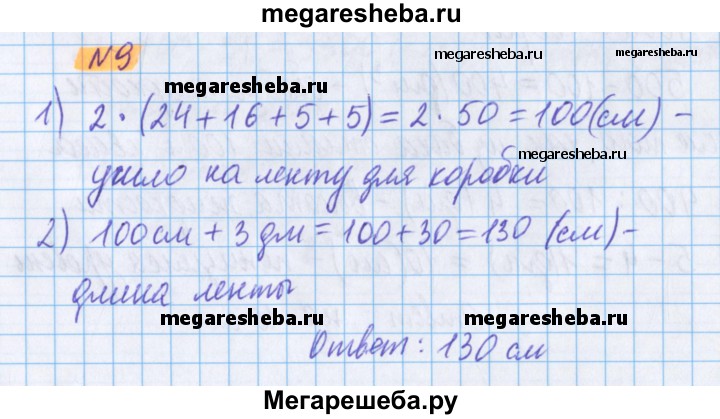 megaresheba.ru
№9
megaresheba.ru
megaresheba.ru
megaresheba.ru
1) 2 · (24 + 16 + 5 + 5) = 2 · 50 = 100 (см) –
megaresheba.ru
ушло на ленту для коробки
2) 100 см + 3 дм = 100 + 30 = 130 (см) –
длина ленты
megaresheba.ru
megaresheba.ru
Ответ: 130 см
Мегарешеба.ру